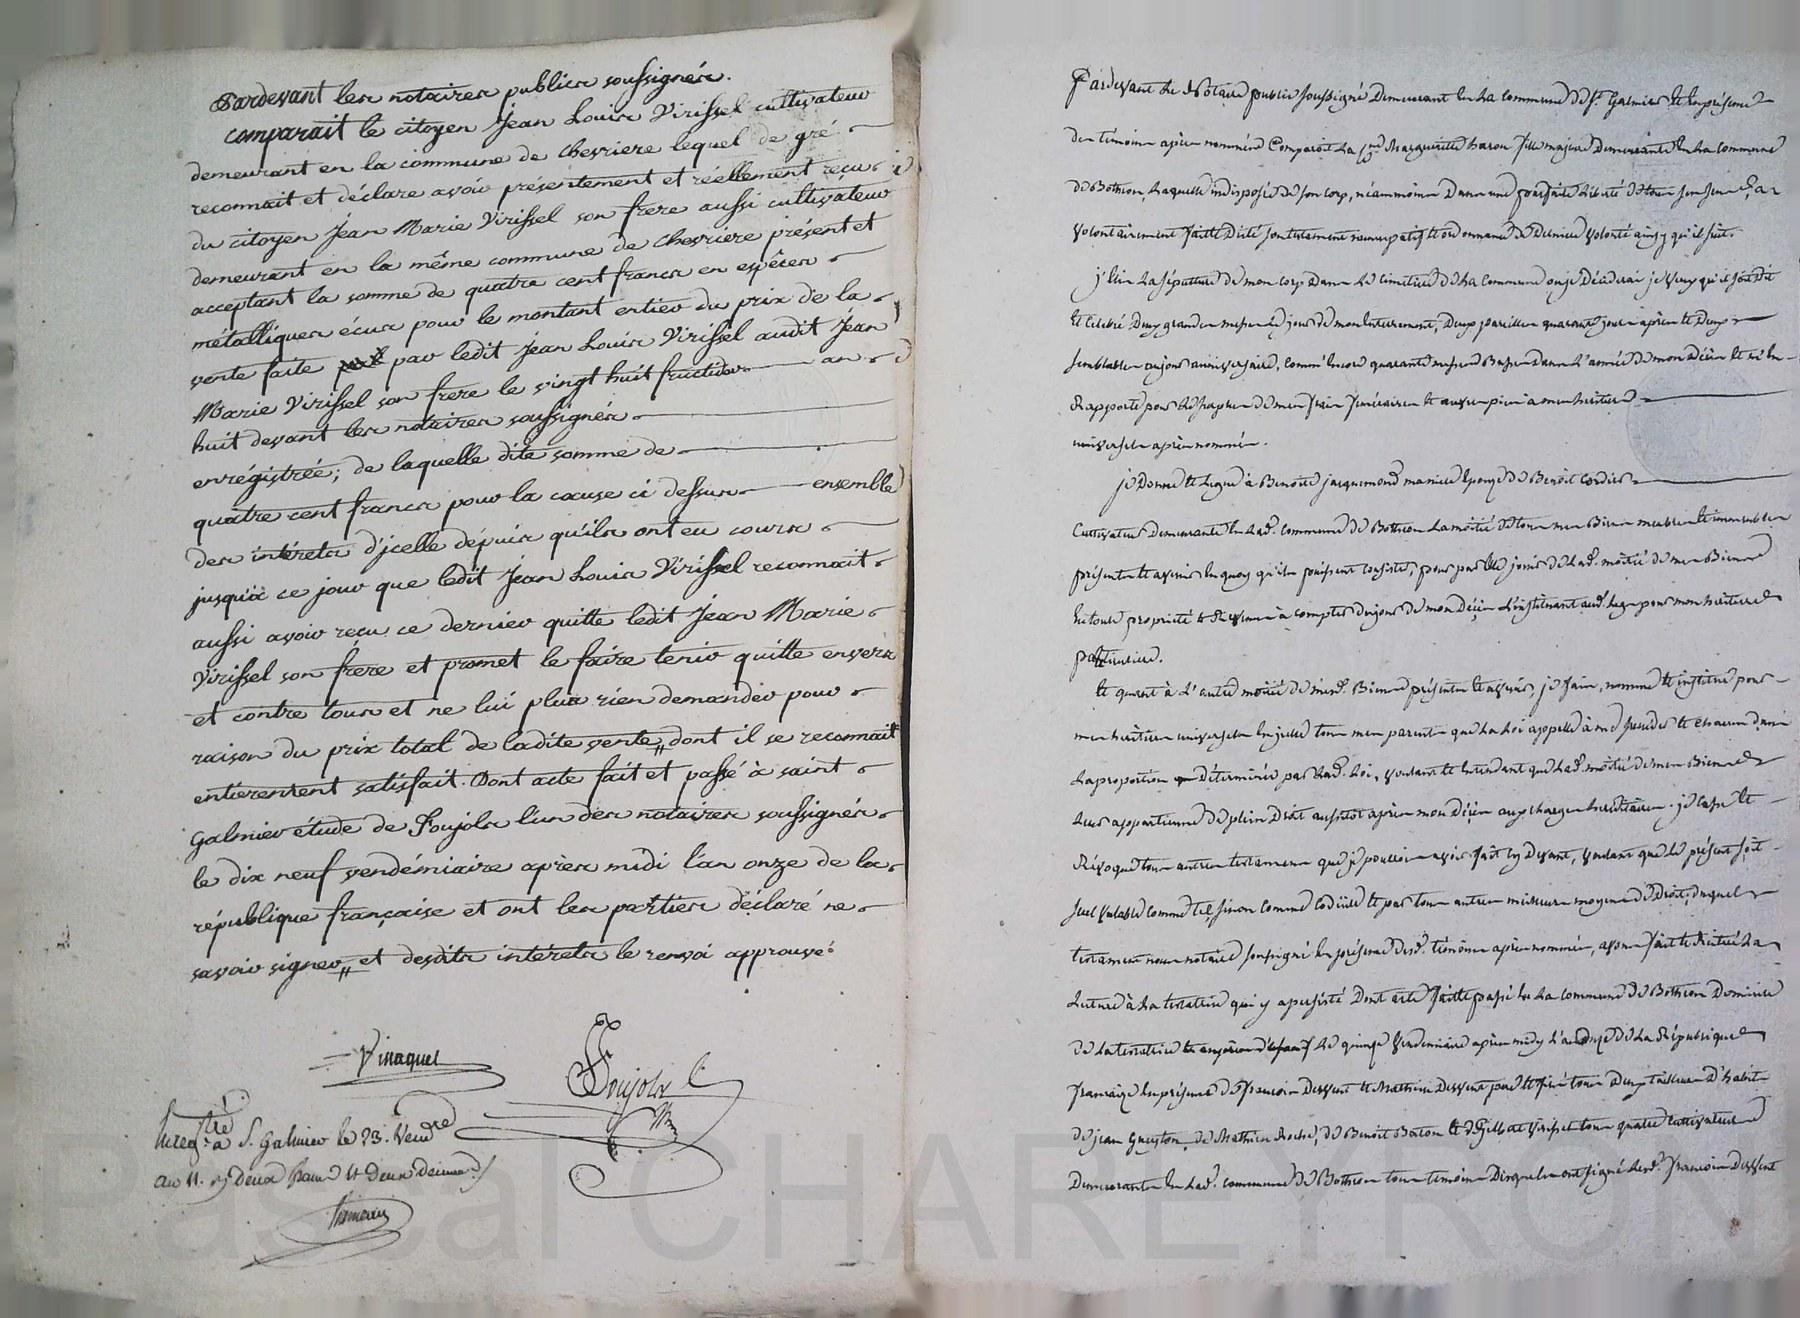 Pardevant les notaires publics soussignés.
comparait le citoyen Jean Louis Virissel cultivateur
demeurant en la commune de Chevriere lequel de gré
reconnait et déclare avoir présentement et réellement reçu
du citoyen Jean Marie Virissel son frere aussi cultivateur
demeurant en la même commune de Chevriere présent et
acceptant la somme de quatre cent francs en espèces
métalliques écus pour le montant entier du prix de la
vente faite par ledit Jean Louis Virissel audit Jean
Marie Virissel son frere le vingt huit fructidor an
huit devant les notaires soussignés
enrégistrée; de laquelle dite somme de
quatre cent francs pour la cause ci dessus ensemble
des intérets d'jcelle dépuis qu'ils ont eu cours
jusqu'à ce jour que ledit Jean Louis Virissel reconnait
aussi avoir reçu ce dernier quitte ledit Jean Marie
Virissel son frere et promet le faire tenir quitte envers
et contre tous et ne lui plus rien demander pour
raison du prix total de ladite vente,, dont il se reconnait
entièrement satisfait. Dont acte fait et passé à saint
galmier étude de Poujols l'un des notaires soussignés
le dix neuf vendémiaire après midi l'an onze de la
république française et ont les parties déclaré ne
savoir signer,, et desdits intérets le renvoi approuvé
Vinaquet
Poujols
Enreg.tré à S. Galmier le 23. Vend.re
an 11. deux francs et deux décimes
Pardevant Le Notaire public soussigné Demeurant En La Commune de St Galmier, Et En présence
des témoins après nommés Comparoit La Marguerite fille majeure Demeurante En La Commune
de Bothéon, Laquelle indisposée de son corps, néanmoins Dans une parfaite Liberté de tous ses sens, a
Volontairement faite Dicté son testament nuncupatif et ordonnance de Derniere Volonté ainsy qu'il suit.
j'Elis La sépulture de mon corps Dans Le Cimetiere de La Commune ou je Décéderai je Veux qu'il soit Dit
Et Célébré Deux grandes messes Le jour de mon Enterrement, Deux pareilles quarante jours après Et Deux
semblables au jour anniversaire, Comme Encore quarante messes Basses Dans L'année de mon Décès Et m'En
Rapporte pour Le de mes frais funéraires Et autres à mes héritiers
universels après nommés.
je Donne Et Legue à Benoite jacquemond mariée Epouse de Benoit Cordier
Cultivateur Demeurante En Lad. Commune de Bothéon La moitié de tous mes Biens meubles Et immeubles
présents Et avenir En quoy qu'ils puissent Consister, pour par Elle jouir de Lad. moitié de mes Biens
En toute propriété à compter du jour de mon Décès L'instituant aud. Legs pour mon héritiere
particuliere.
Et quant à L'autre moitié de mesd. Biens présents Et avenir, je fais, nomme Et institue pour
mes héritiers universels tous mes parents que La Loi appelle à me succéder Et chacun dans
La proportion Déterminée par Lad. Loi, voulant Et Entendant que Lad. moitié de mes Biens
Leur appartienne de plein Droit aussitot après mon Décès aux charges héréditaires. je Casse Et
Révoque tous autres testaments que je pourrois avoir fait cy Devant, Voulant que Le présent soit
seul Valable Comme tel, sinon Comme Codicile Et par tous autres meilleurs moyens de Droit; duquel
testament nous notaire soussigné En présence desd. témoins après nommés, avons fait Et Réitéré La
Lecture à La testatrice qui y a persisté Dont acte fait Et passé En La Commune de Bothéon Domicile
de La testatrice Le quinze Vendemiaire après midy L'an onze de La République
française En présence de françois Dessent Et Mathieu Dessent pere Et fils tous Deux tailleurs D'habits
de jean Guyton, de Mathieu Roche, de Benoit Berton Et de Gilbert Virissel tous quatre Cultivateurs
Demeurants En Lad. Commune de Bothéon tous témoins Desquels ont signé Lesd. françois Dessent
Pascal CHAREYRON